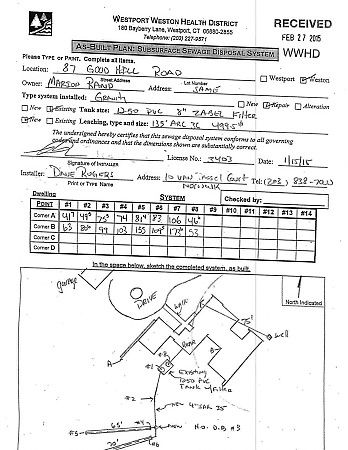 WESTPORT WESTON HEALTH DISTRICT
180 Bayberry Lane, Westport, CT 06880-2855
Telephone: (203) 227-9571
RECEIVED
FEB 27 2015
WWHD
AS-BUILT PLAN: SUBSURFACE SEWAGE DISPOSAL SYSTEM
Please TYPE or PRINT. Complete all items.
Location: 87 GOOD HILL ROAD Westport Weston
Street Address Lot Number
Owner: MARION RAND SAME
Type system installed: GRAVITY New Repair Alteration
New Existing Tank size: 1250 PVC 8" ZABEL Filter
New Existing Leaching, type and size: 135' ARC 36 499.5
The undersigned hereby certifies that this sewage disposal system conforms to all governing
codes and ordinances and that the dimensions shown are substantially correct.
License No.: Date: 1/15/15
Signature of INSTALLER
Installer: DAVE ROGERS Address: Tel: (203) 838-
Print or Type NAME NORWALK
Dwelling SYSTEM Checked by:
POINT #1 #2 #3 #4 #5 #6 #7 #8 #9 #10 #11 #12 #13 #14
Corner A 74 83 106
Corner B 63 99 103 155 53
Corner C
Corner D
In the space below, sketch the completed system, as built.
North Indicated
garage
DRIVE
walk
75'
well
A
B
#8
#1
EXISTING
1250 PVC
TANK w/Filter
#2
NEW 4" SDR 35
65'
#4
NEW H.D. DB #3
#5
70'
#6